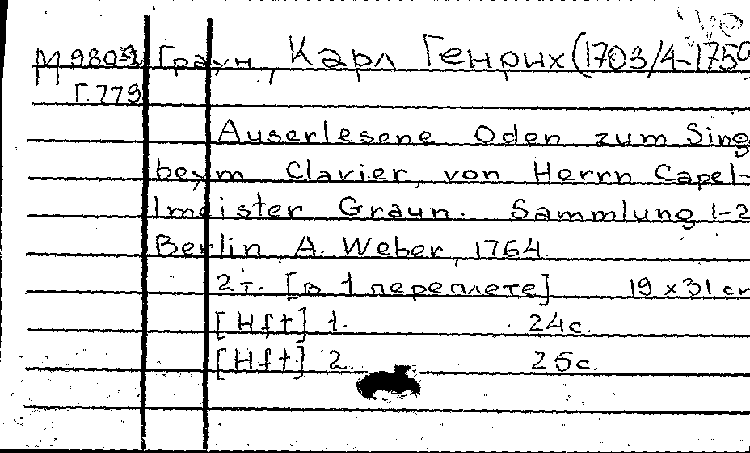 М 980-2 Граун, Карл Генрих (1703/4-1759
Г.779
Auserlesene Oden zum Sing
beym Clavier, von Herrn Capel-
lmeister Graun. Sammlung 1-2
Berlin, A. Weber, 1764
2 т. [в 1 переплете] 19 x 31 cm
[Hft] 1. 24 с.
[Hft] 2. 25 с.